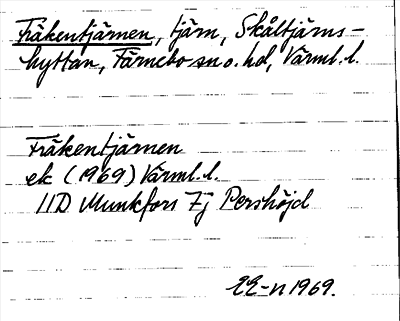 Fräkentjärnen, tjärn, Skåltjärns-
hyttan, Färnebo sn o. hd, Värml. l.
Fräkentjärnen
ek (1969) Värml. l.
11D Munkfors 7j Pershöjd
EE-n 1969.